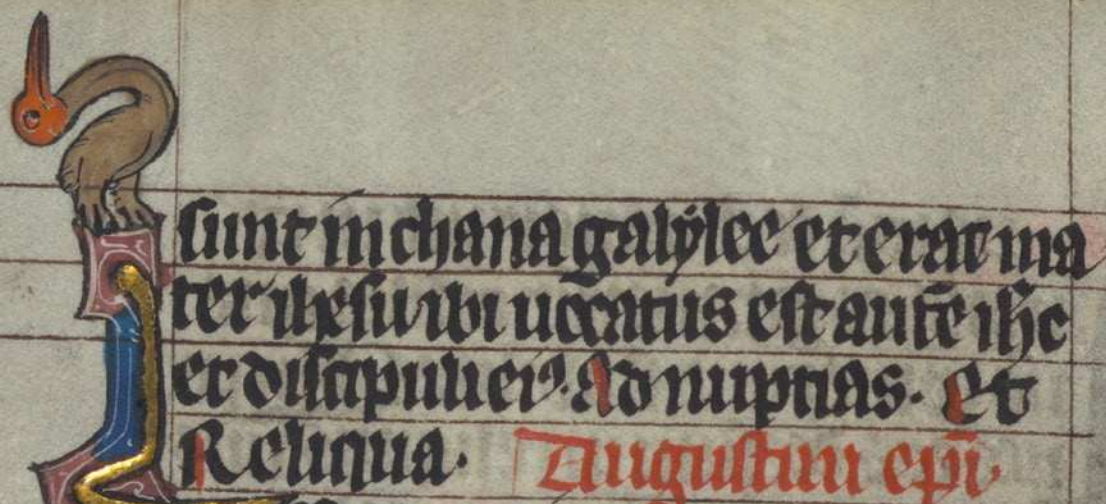 sunt in chana galylee et erat ma
ter ihesu ibi uocatus est autē ihc
et discipuli ei⁹. Ad nuptias. Et
Reliqua. Augustini epi.